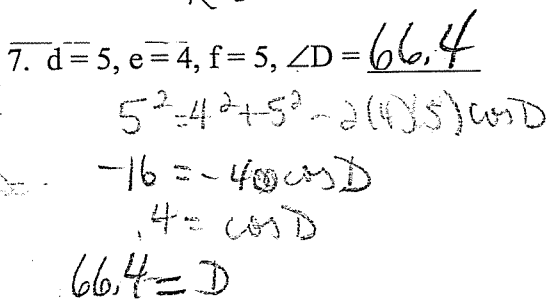 7. d = 5, e = 4, f = 5, ∠D = 66.4
5²=4²+5²-2(4)(5)cosD
-16 = -40cosD
.4 = cosD
66.4 = D